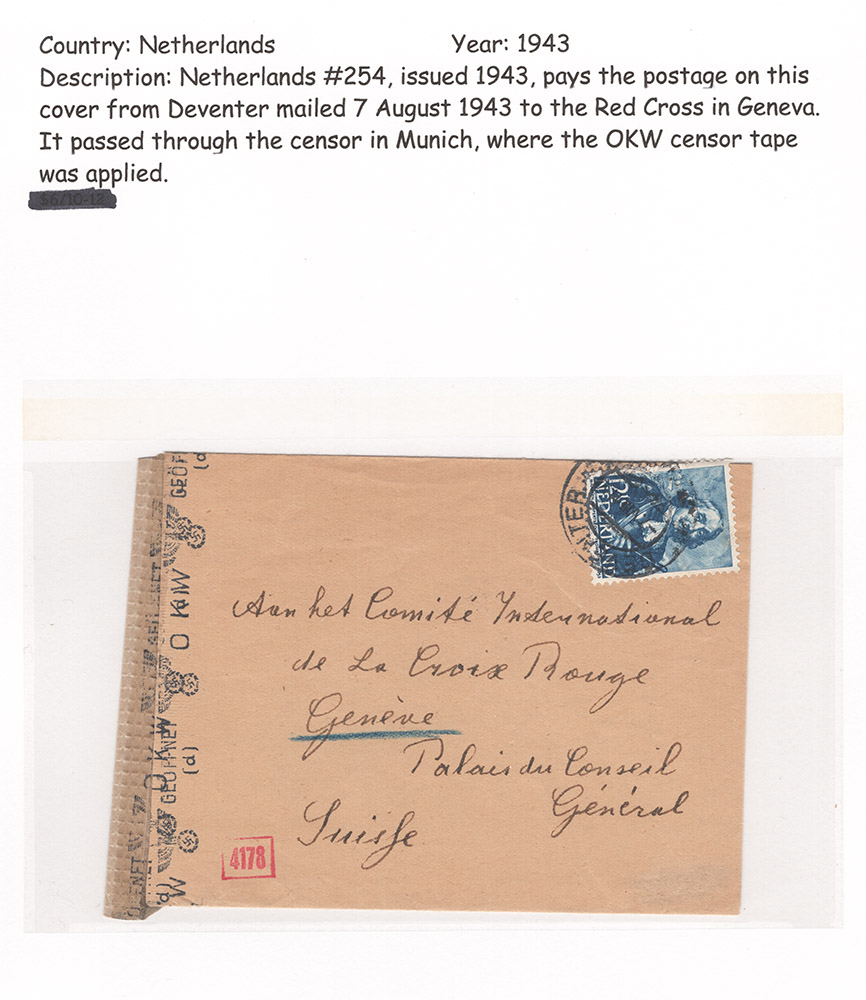 Country: Netherlands Year: 1943
Description: Netherlands #254, issued 1943, pays the postage on this
cover from Deventer mailed 7 August 1943 to the Red Cross in Geneva.
It passed through the censor in Munich, where the OKW censor tape
was applied.
$6/10-12
12½
NEDERLAND
Aan het Comité International
de La Croix Rouge
Genève
Palais du Conseil
Général
Suisse
4178
GEÖFFNET
(d)
OKW